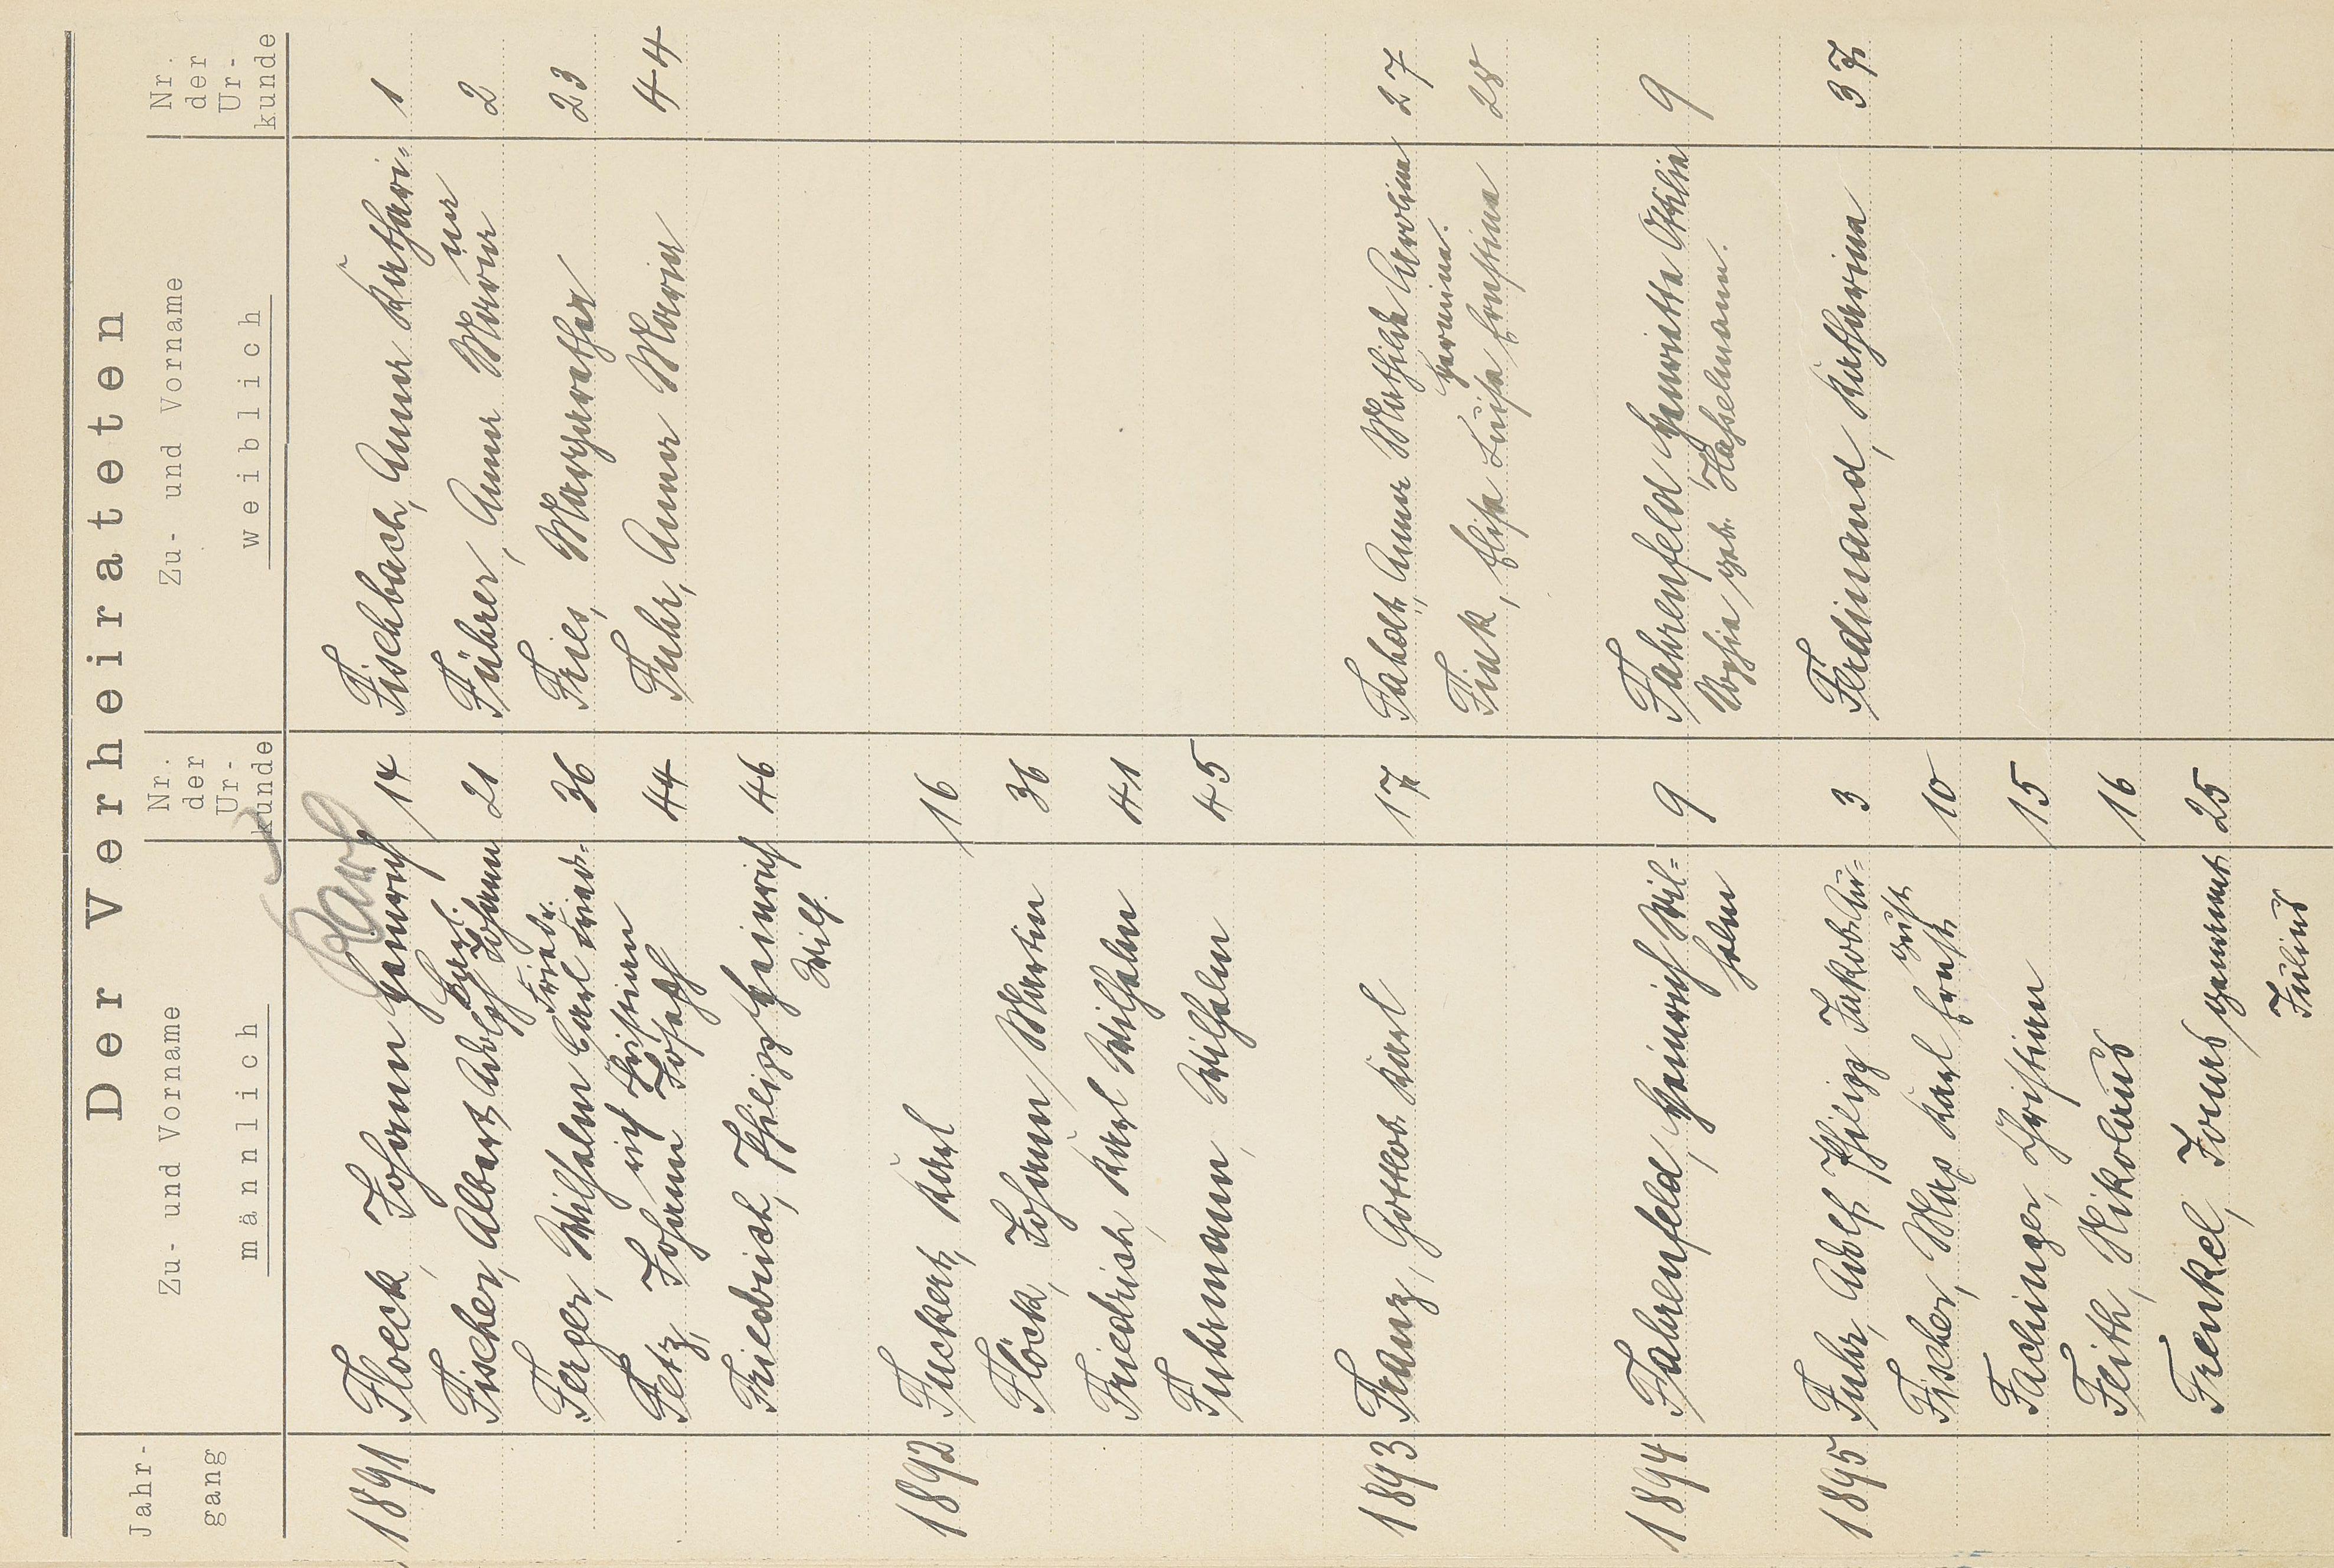 Der Verheirateten
Jahr-
gang
Zu- und Vorname
männlich
Nr.
der
Ur-
kunde
Zu- und Vorname
weiblich
Nr.
der
Ur-
kunde
1891 Floeck, Johann Heinrich 14 Fischbach, Anna Kathari- 1
Karl. na
Fischer, Albert Adolf Johann 21 Führer, Anna Maria 2
Friedr.
Ferger, Wilhelm Carl Fried- 36 Fries, Margaretha 23
rich Christian
Fetz, Johann Joseph 44 Fuhr, Anna Maria 44
Friedrich, Philipp Heinrich 46
Wilh.
1892 Fuckert, Karl 16
Flöck, Johann Martin 36
Friedrich, Karl Wilhelm 41
Fuhrmann, Wilhelm 45
1893 Franz, Gottlob Karl 17 Faholt, Anna Mathilde Carolina 27
Hermina.
Fink, Elise Luise Ernstine 28
1894 Fahrenfeld, Heinrich Wil= 9 Fahrenfeld Henriette Ottilie 9
helm Sophie geb. Haßelmann.
1895 Fuhr, Adolf Philipp Jakob Au= 3 Ferdinand, Katharina 37
gust
Fischer, Max Karl Ernst 10
Fachinger, Christian 15
Feith, Nikolaus 16
Frenkel, Jonas genannt 25
Julius